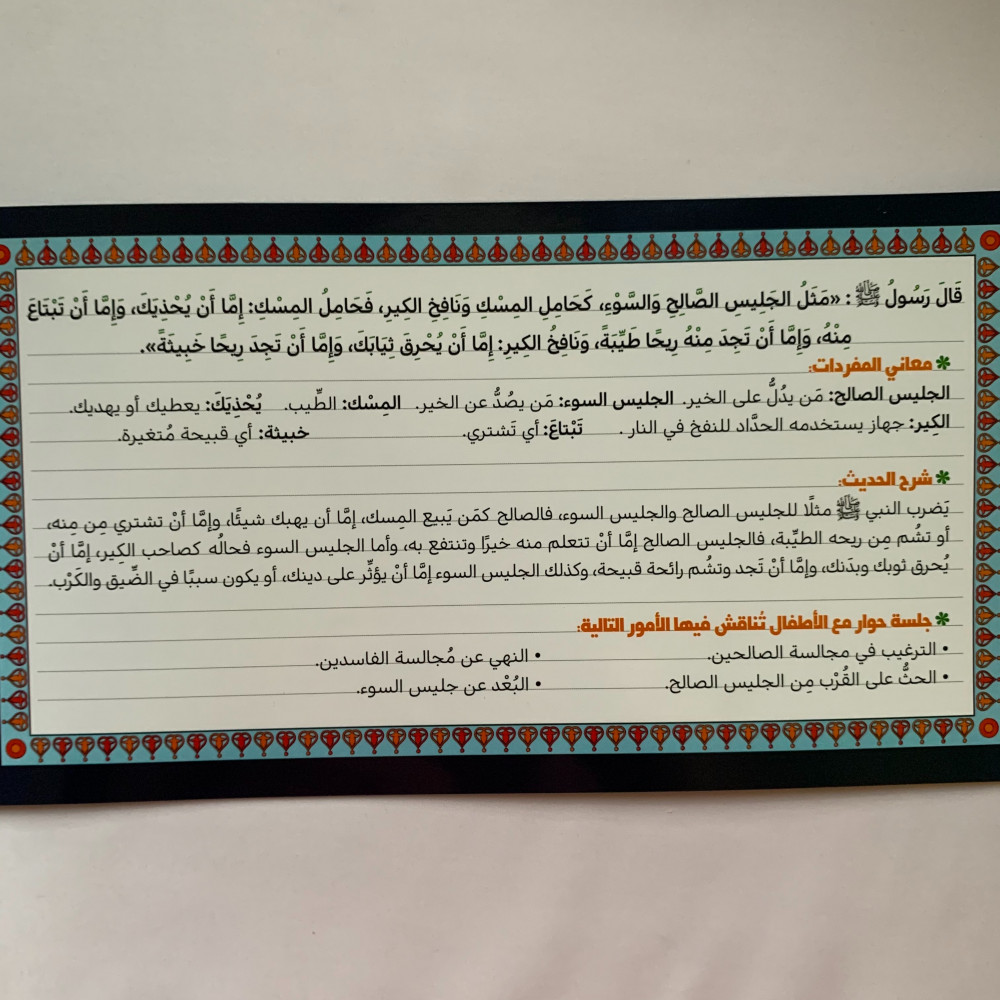 قَالَ رَسُولُ ﷺ : «مَثَلُ الجَلِيسِ الصَّالِحِ وَالسَّوْءِ، كَحَامِلِ المِسْكِ وَنَافِخِ الكِيرِ، فَحَامِلُ المِسْكِ: إِمَّا أَنْ يُحْذِيَكَ، وَإِمَّا أَنْ تَبْتَاعَ
مِنْهُ، وَإِمَّا أَنْ تَجِدَ مِنْهُ رِيحًا طَيِّبَةً، وَنَافِخُ الكِيرِ: إِمَّا أَنْ يُحْرِقَ ثِيَابَكَ، وَإِمَّا أَنْ تَجِدَ رِيحًا خَبِيثَةً».
* معاني المفردات:
الجليس الصالح: مَن يدُلُّ على الخير. الجليس السوء: مَن يصُدُّ عن الخير. المِسْك: الطِّيب. يُحْذِيَكَ: يعطيك أو يهديك.
الكِير: جهاز يستخدمه الحدَّاد للنفخ في النار . تَبْتاعَ: أي تَشتري. خبيثة: أي قبيحة مُتغيرة.
* شرح الحديث:
يَضرب النبي ﷺ مثلًا للجليس الصالح والجليس السوء، فالصالح كمَن يَبيع المِسك، إمَّا أن يهبك شيئًا، وإمَّا أنْ تشتري مِن مِنه،
أو تشُم مِن ريحه الطيِّبة، فالجليس الصالح إمَّا أنْ تتعلم منه خيرًا وتنتفع به، وأما الجليس السوء فحالُه كصاحب الكِير، إمَّا أنْ
يُحرق ثوبك وبدَنك، وإمَّا أنْ تَجد وتشُم رائحة قبيحة، وكذلك الجليس السوء إمَّا أنْ يؤثِّر على دينك، أو يكون سببًا في الضِّيق والكَرْب.
* جلسة حوار مع الأطفال تُناقش فيها الأمور التالية:
• الترغيب في مجالسة الصالحين. • النهي عن مُجالسة الفاسدين.
• الحثُّ على القُرْب مِن الجليس الصالح. • البُعْد عن جليس السوء.